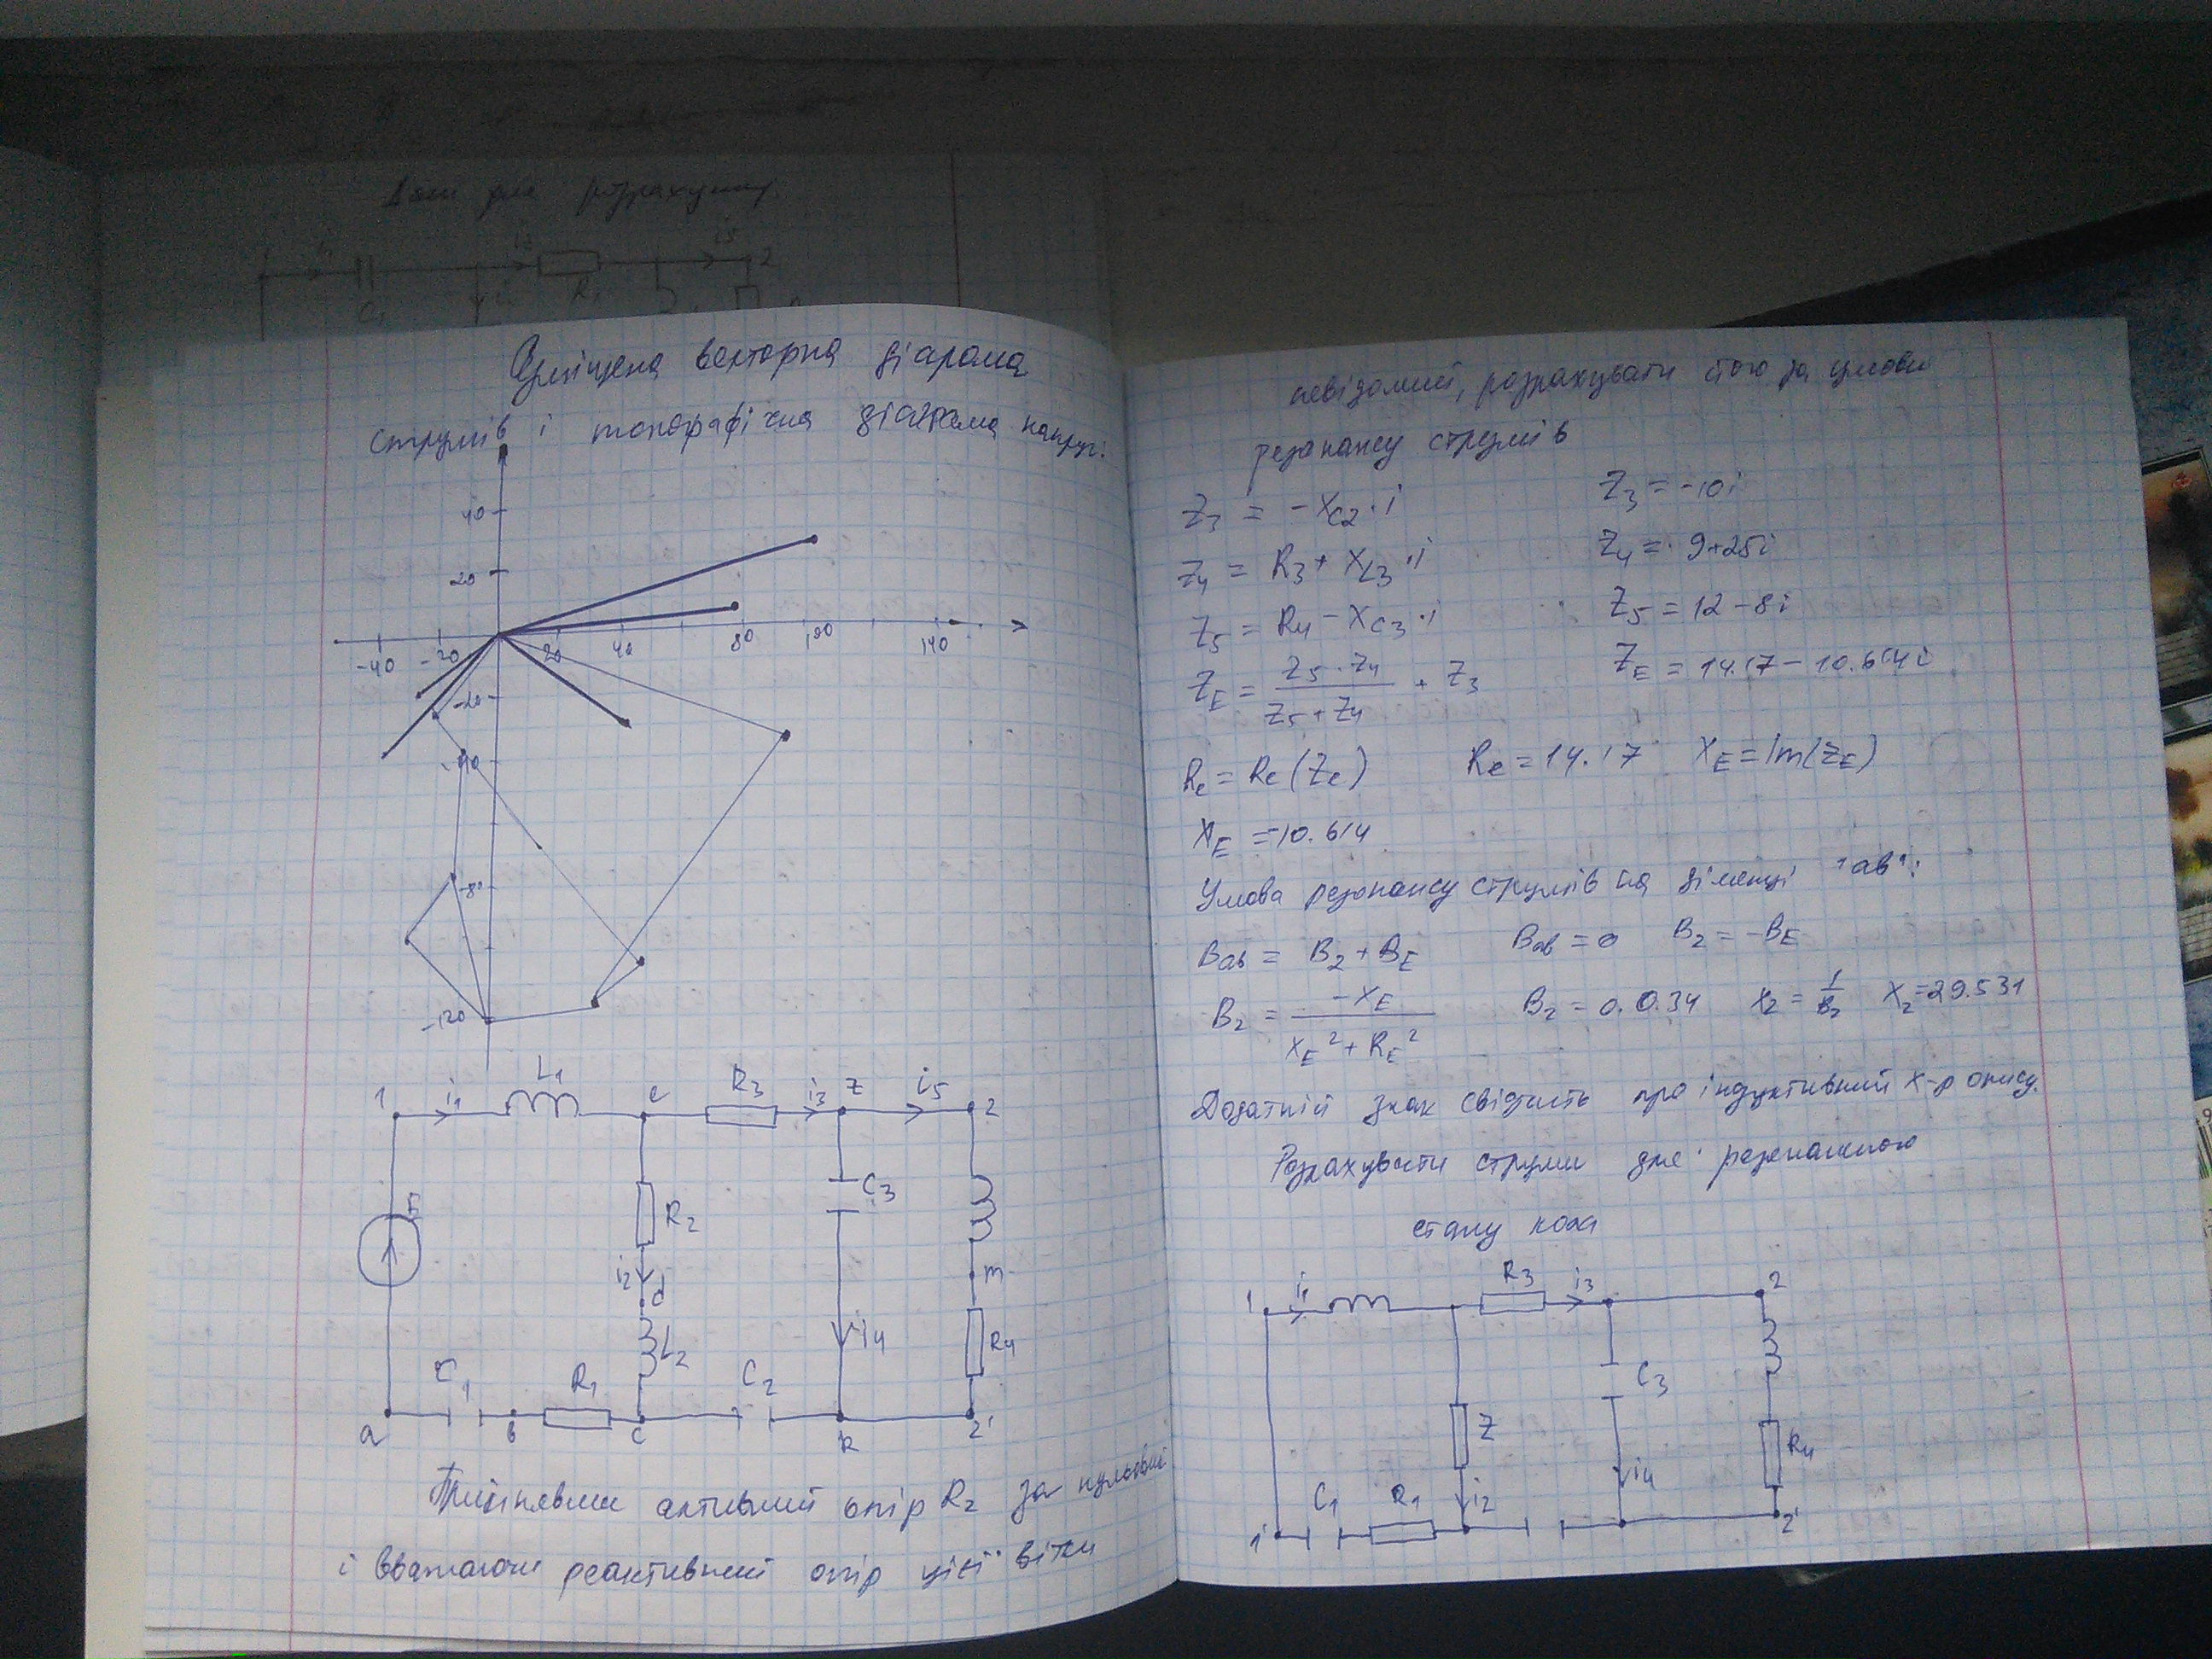 Дані для розрахунку
Суміщена векторна діаграма
струмів і топографічна діаграма напруг.
40
20
-40 -20 20 40 80 100 140
-20
-40
-80
-120
1 i1 L1 e R3 i3 z i5 2
E R2 C3
i2 d m
L2 i4 R4
C1 R1 C2
a в c k 2'
Прийнявши активний опір R2 за нульовий
і вважаючи реактивний опір цієї вітки
невідомий, розрахувати його за умови
резонансу струмів
Z3 = -XC2·i Z3 = -10i
Z4 = R3 + XL3·i Z4 = 9+25i
Z5 = R4 - XC3·i Z5 = 12-8i
ZE = Z5·Z4 / Z5+Z4 + Z3 ZE = 14.17-10.614i
Re = Re(Ze) Re = 14.17 XE = Im(ZE)
XE = -10.614
Умова резонансу струмів на ділянці "ав":
Bав = B2 + BE Bав = 0 B2 = -BE
B2 = -XE / XE² + RE² B2 = 0.0.34 X2 = 1/B2 X2 = 29.531
Додатній знак свідчить про індуктивний х-р опису.
Розрахувати струми для резонансного
стану кола
1 i1 R3 i3 2
Z C3
i2 i4 R4
1' C1 R1 2'